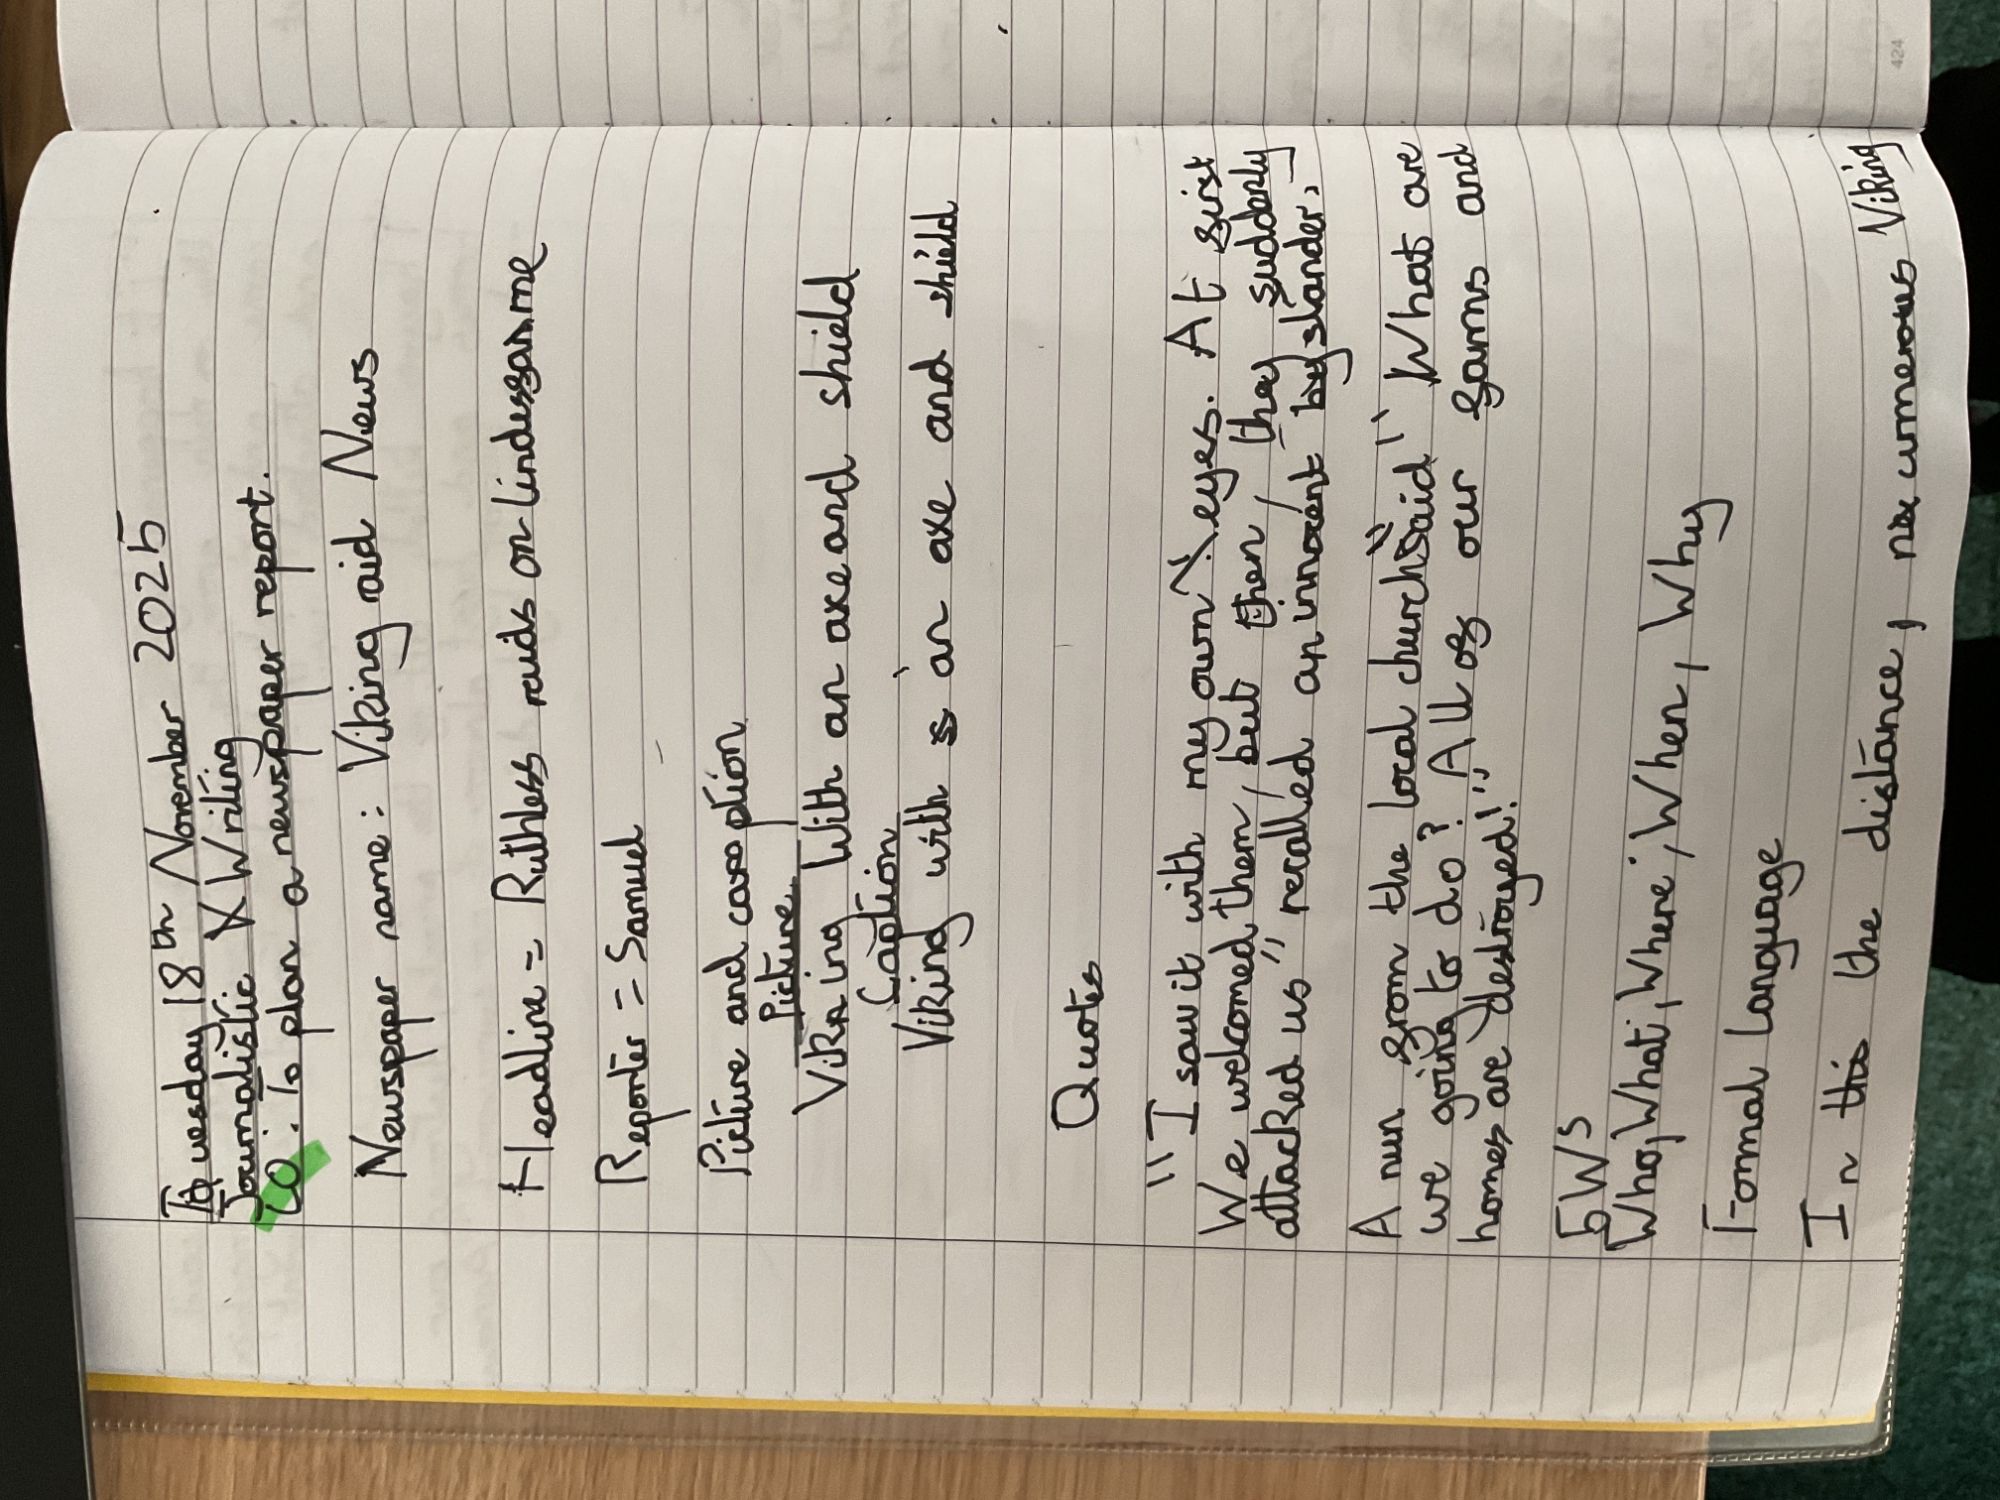 Tuesday 18th November 2025
Journalistic Writing
LO: To plan a newspaper report.
Newspaper name: Viking aid News
Headline = Ruthless raids on lindessfarme
Reporter = Samuel
Picture and caption
Picture
Viking With an axe and shield
Caption
Viking with an axe and shield
Quotes
"I saw it with my own eyes. At first
We welcomed them, but then, they suddenly
attacked us" recalled an innocent bystander.
A nun from the local church said "What are
we going to do?" "All of our farms and
homes are destroyed!"
5Ws
Who, What, Where, When, Why
Formal Language
In the distance, numerous Viking
424